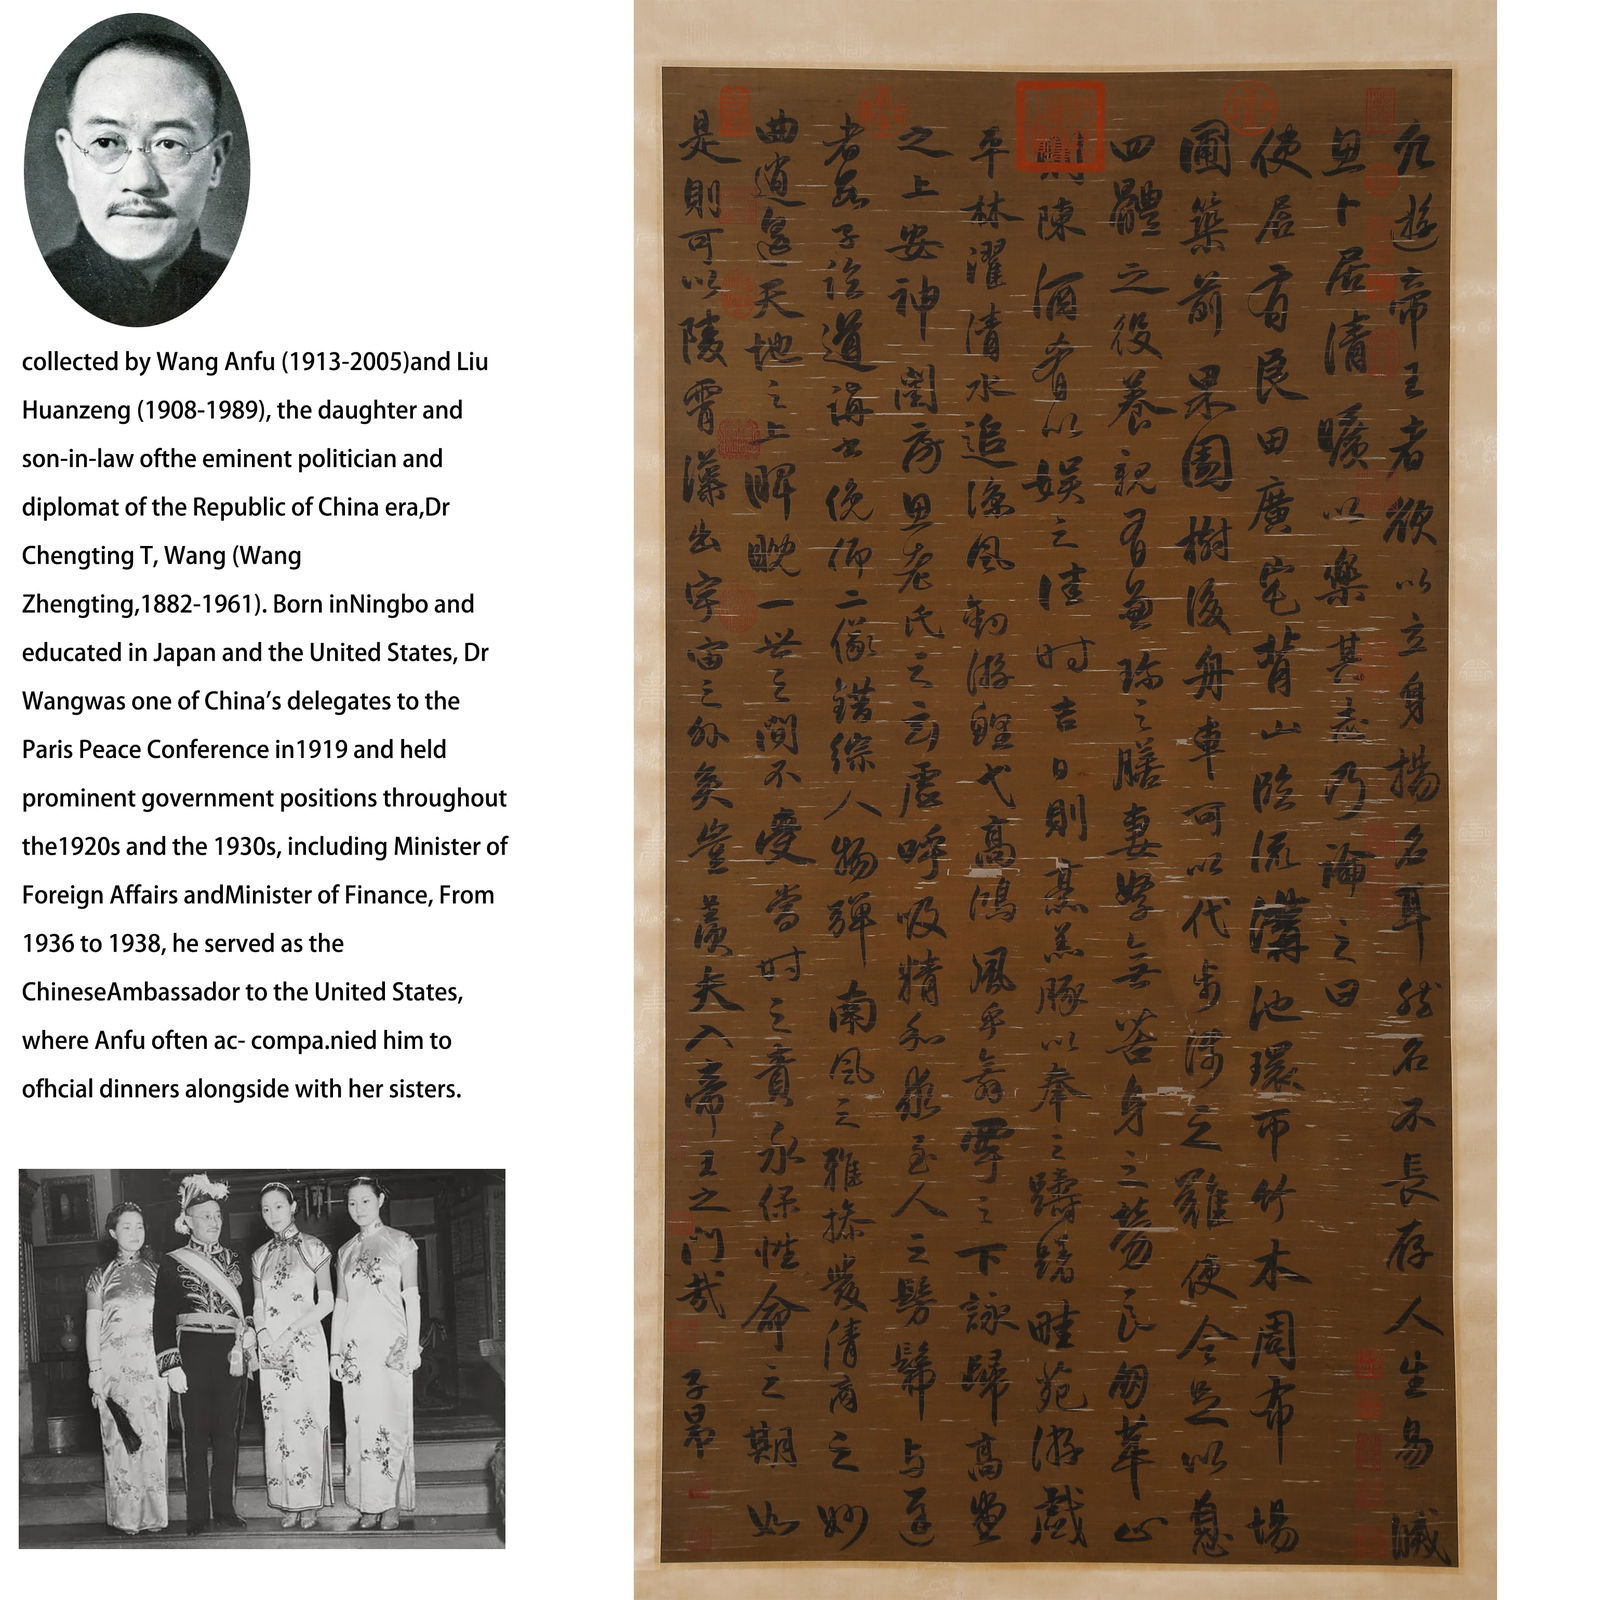 collected by Wang Anfu (1913-2005)and Liu
Huanzeng (1908-1989), the daughter and
son-in-law ofthe eminent politician and
diplomat of the Republic of China era,Dr
Chengting T, Wang (Wang
Zhengting,1882-1961). Born inNingbo and
educated in Japan and the United States, Dr
Wangwas one of China’s delegates to the
Paris Peace Conference in1919 and held
prominent government positions throughout
the1920s and the 1930s, including Minister of
Foreign Affairs andMinister of Finance, From
1936 to 1938, he served as the
ChineseAmbassador to the United States,
where Anfu often ac- compa.nied him to
ofhcial dinners alongside with her sisters.
凡遊帝王者欲以立身揚名耳然名不長存人生易滅
思卜居清曠以樂其志乃論之曰
使居有良田廣宅背山臨流溝池環帀竹木周布場
圃築前果園樹後舟車可以代步涉之難使令足以息
四體之役養親有兼珍之膳妻孥無苦身之勞良朋萃止
則陳酒肴以娛之佳時吉日則烹羔豚以奉之躊躇畦苑游戲
平林濯清水追涼風釣游鯉弋高鴻風乎舞雩之下詠歸高堂
之上安神閨房思老氏之玄虛呼吸精和求至人之髣髴與達
者數子論道講書俛仰二儀錯綜人物彈南風之雅操發清商之妙
曲逍遙天地之上睥睨一世之間不受當時之責永保性命之期如
是則可以陵霄漢出宇宙之外矣豈羨夫入帝王之門哉 子昂